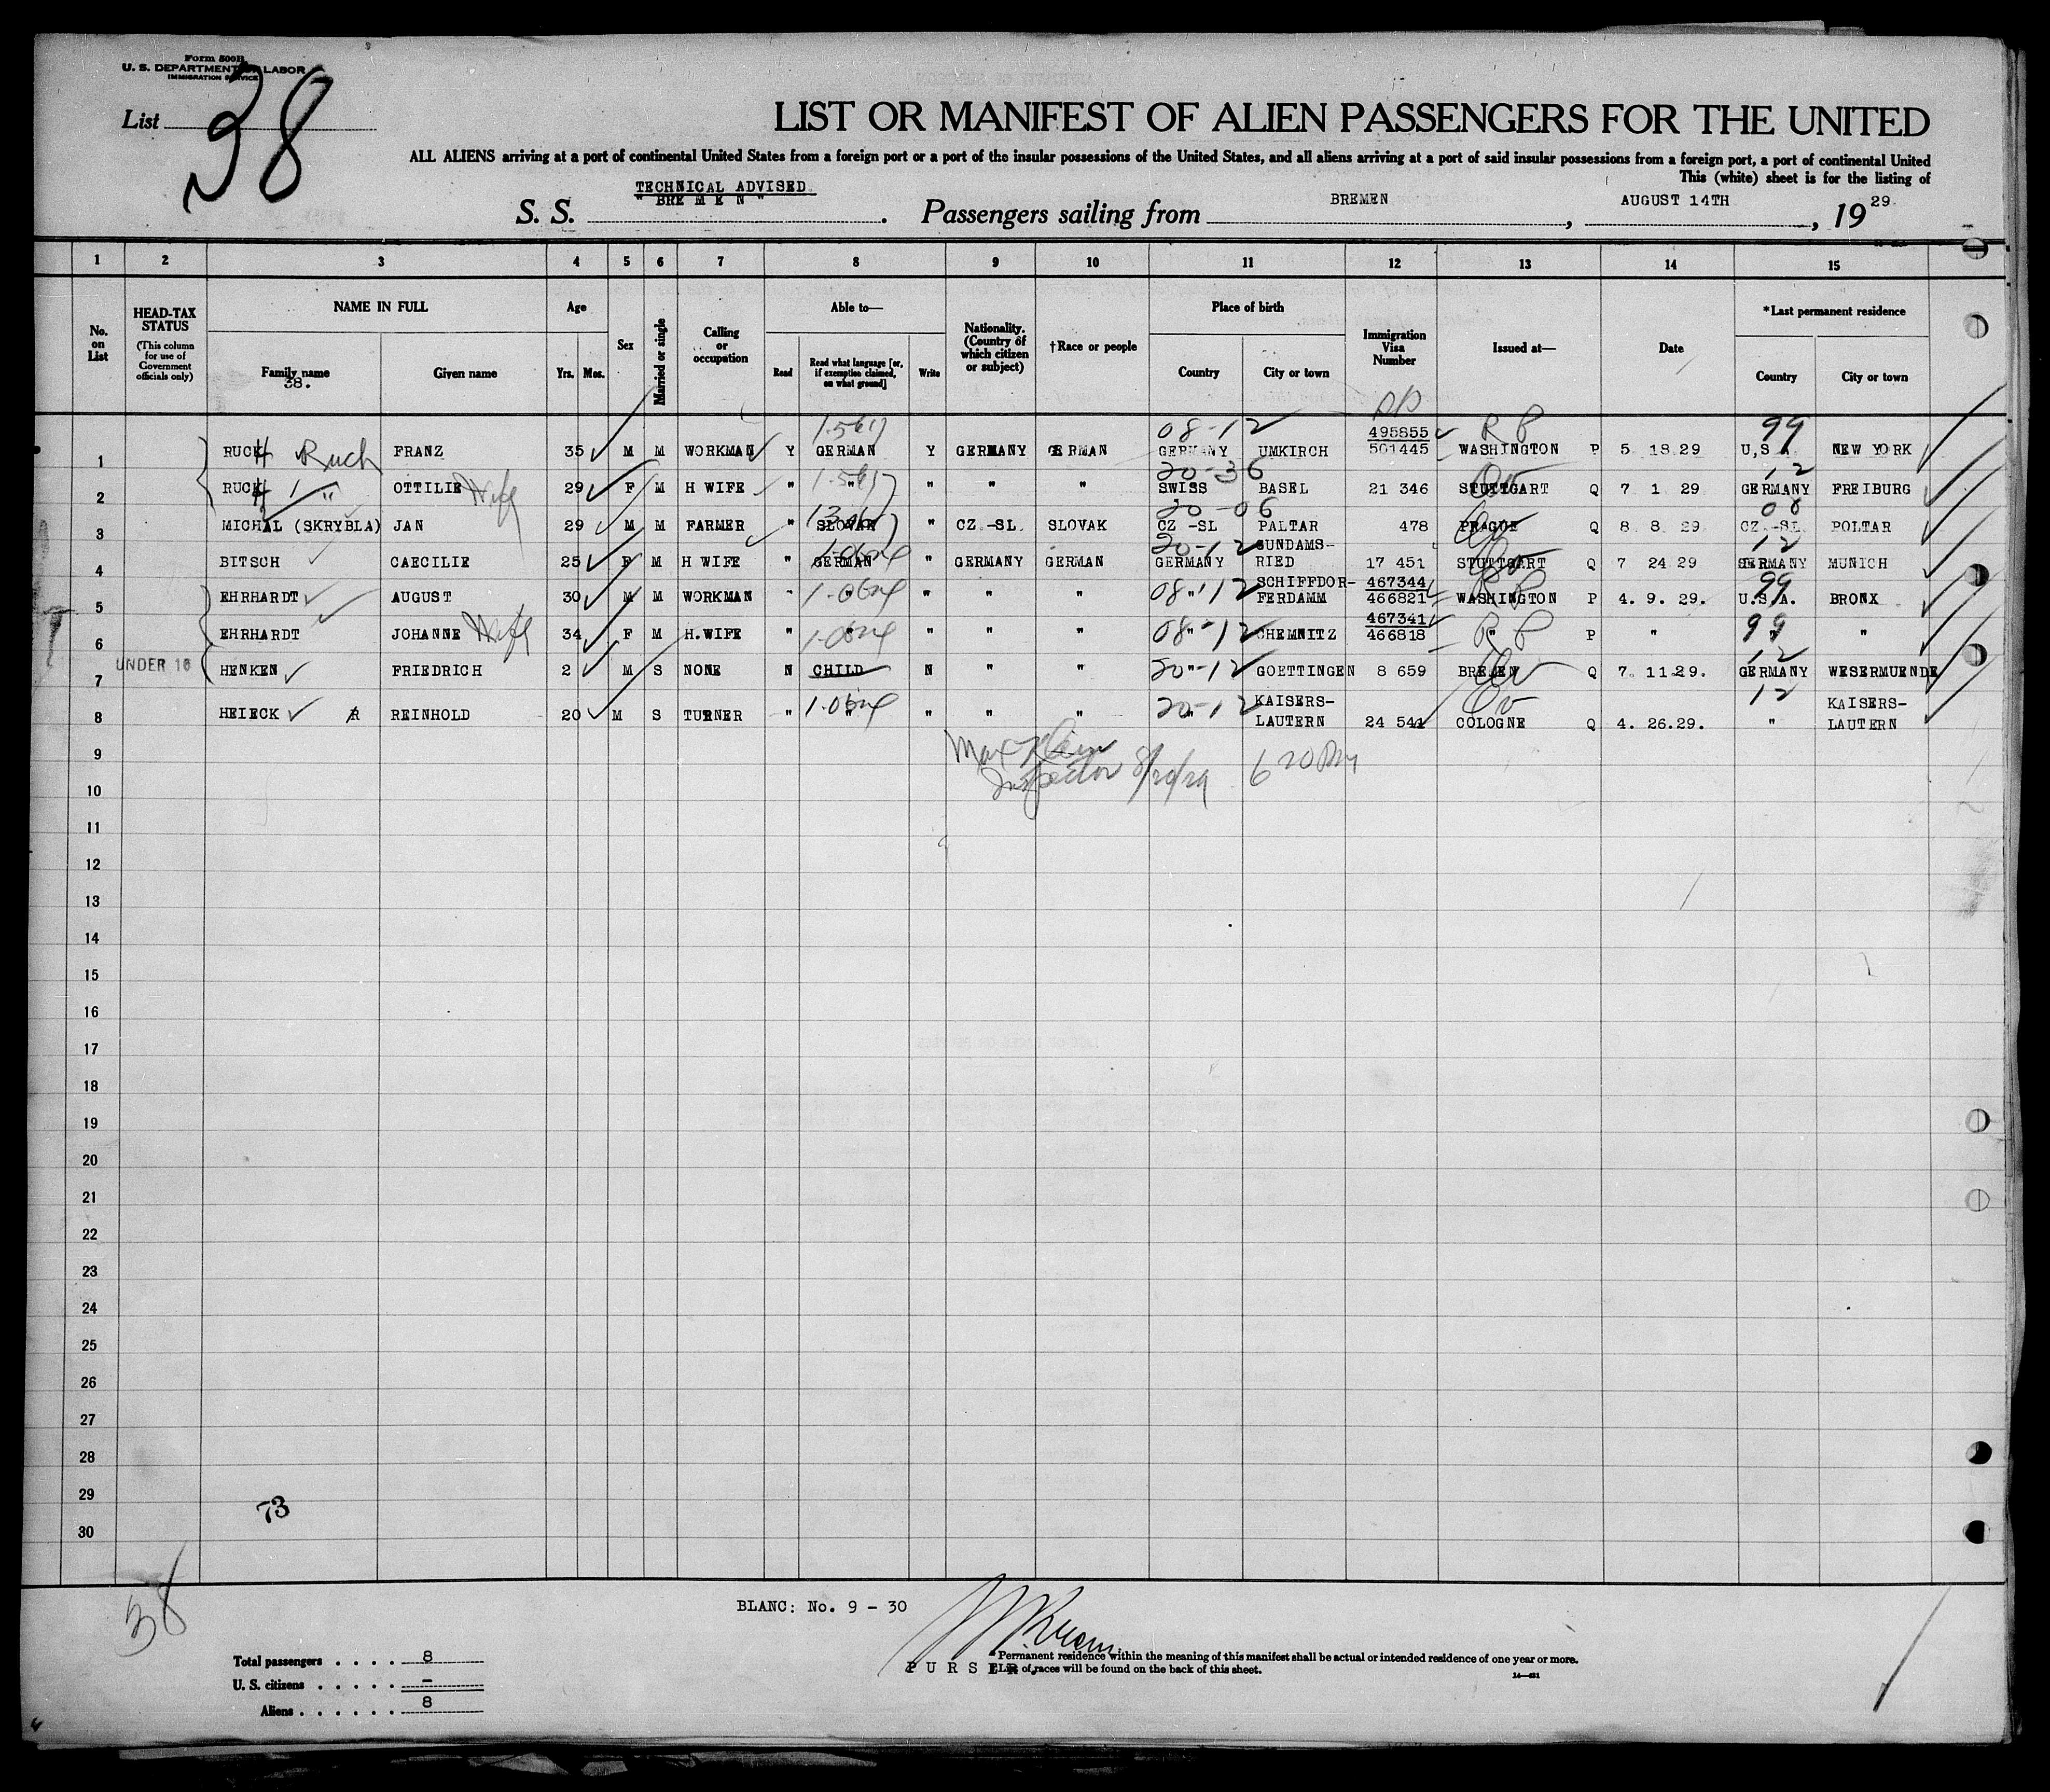 Form 500B
U. S. DEPARTMENT OF LABOR
IMMIGRATION SERVICE
List 38
LIST OR MANIFEST OF ALIEN PASSENGERS FOR THE UNITED
ALL ALIENS arriving at a port of continental United States from a foreign port or a port of the insular possessions of the United States, and all aliens arriving at a port of said insular possessions from a foreign port, a port of continental United
This (white) sheet is for the listing of
TECHNICAL ADVISED
S. S. " BREMEN ". Passengers sailing from BREMEN, AUGUST 14TH, 1929
1 2 3 4 5 6 7 8 9 10 11 12 13 14 15
No. on List
HEAD-TAX STATUS (This column for use of Government officials only)
NAME IN FULL Family name Given name
38.
Age Yrs. Mos.
Sex
Married or single
Calling or occupation
Able to— Read Read what language [or, if exemption claimed, on what ground] Write
Nationality. (Country of which citizen or subject)
†Race or people
Place of birth Country City or town
Immigration Visa Number
Issued at—
Date
*Last permanent residence Country City or town
1 RUCH Ruch FRANZ 35 M M WORKMAN Y GERMAN Y GERMANY GERMAN 08-12 GERMANY UMKIRCH 495855 501445 RP WASHINGTON P 5 18 29 99 U,S A NEW YORK
2 RUCH " OTTILIE Wife 29 F M H WIFE " " " " " 20-36 SWISS BASEL 21 346 STUTTGART Q 7 1 29 12 GERMANY FREIBURG
3 MICHAL (SKRYBLA) JAN 29 M M FARMER " SLOVAK " CZ.-SL SLOVAK 20-06 CZ -SL PALTAR 478 PRAGUE Q 8 8 29 06 CZ.-SL POLTAR
4 BITSCH CAECILIE 25 F M H WIFE " GERMAN " GERMANY GERMAN 20-12 GERMANY SUNDAMS-RIED 17 451 STUTTGART Q 7 24 29 12 GERMANY MUNICH
5 EHRHARDT AUGUST 30 M M WORKMAN " " " " 08-12 " SCHIFFDOR-FERDAMM 467344 466821 RP WASHINGTON P 4. 9. 29. 99 U.S.A. BRONX
6 EHRHARDT JOHANNE Wife 34 F M H.WIFE " " " " " 08-12 " CHEMNITZ 467341 466818 RP " P " 99 " "
UNDER 16
7 HENKEN FRIEDRICH 2 M S NONE N CHILD N " " 20-12 " GOETTINGEN 8 659 BREMEN Q 7. 11.29. 12 GERMANY WESERMUENDE
8 HEIECK R REINHOLD 20 M S TURNER " " " " " 20-12 " KAISERS-LAUTERN 24 541 COLOGNE Q 4. 26.29. 12 " KAISERS-LAUTERN
9
Max Klein
Inspector 8/20/29 6 20 PM
10
11
12
13
14
15
16
17
18
19
20
21
22
23
24
25
26
27
28
29
73
30
38
BLANC: No. 9 - 30
Total passengers . . . . 8
U. S. citizens . . . . . –
Aliens . . . . . . 8
PURSER.
*Permanent residence within the meaning of this manifest shall be actual or intended residence of one year or more.
†List of races will be found on the back of this sheet.
14—421